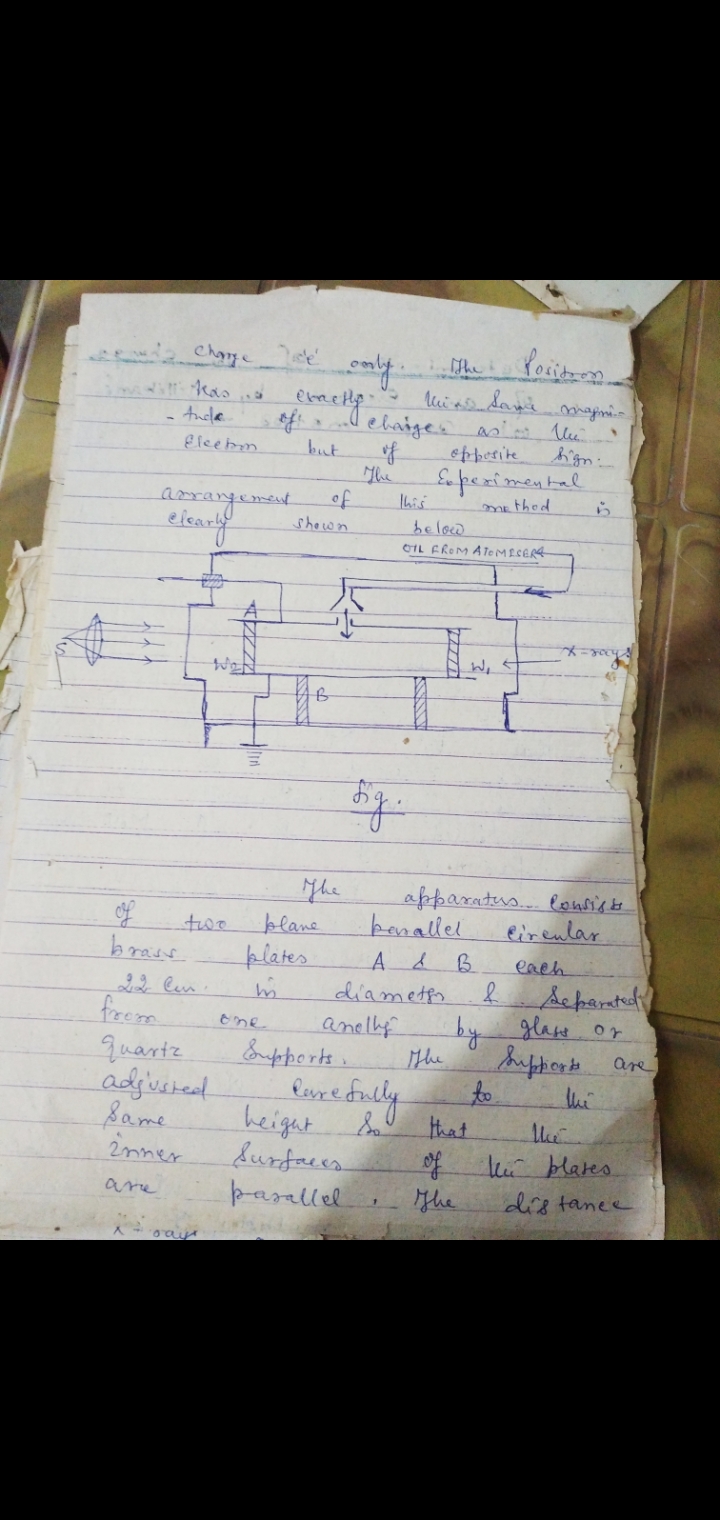 charge 'e' only. The Positron
has exactly the same magni-
-tude of charge as the
electron but of opposite sign.
The Experimental
arrangement of this method is
clearly shown below
OIL FROM ATOMISER
A
S
W2
W1
X-rays
B
fig.
The apparatus consists
of two plane parallel circular
brass plates A & B each
22 cm. in diameter & separated
from one another by glass or
quartz supports. The supports are
adjusted carefully to the
same height so that the
inner surfaces of the plates
are parallel. The distance
x-rays